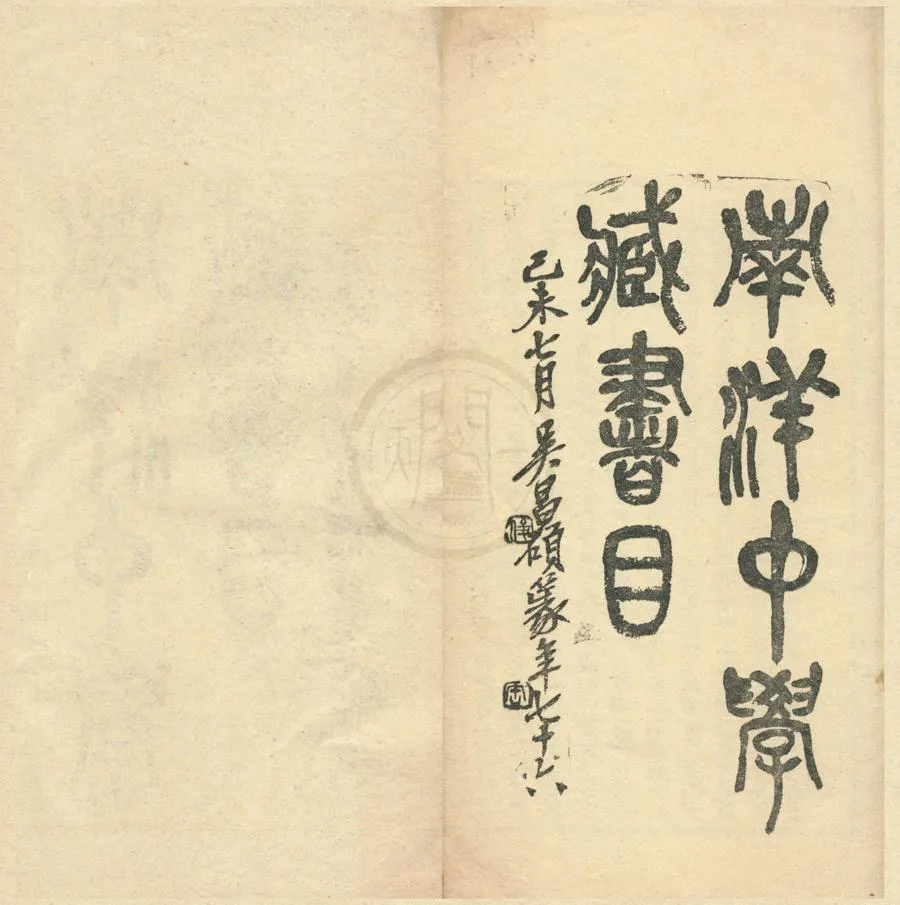 南洋中學
藏書目
己未七月吳昌碩篆年七十六